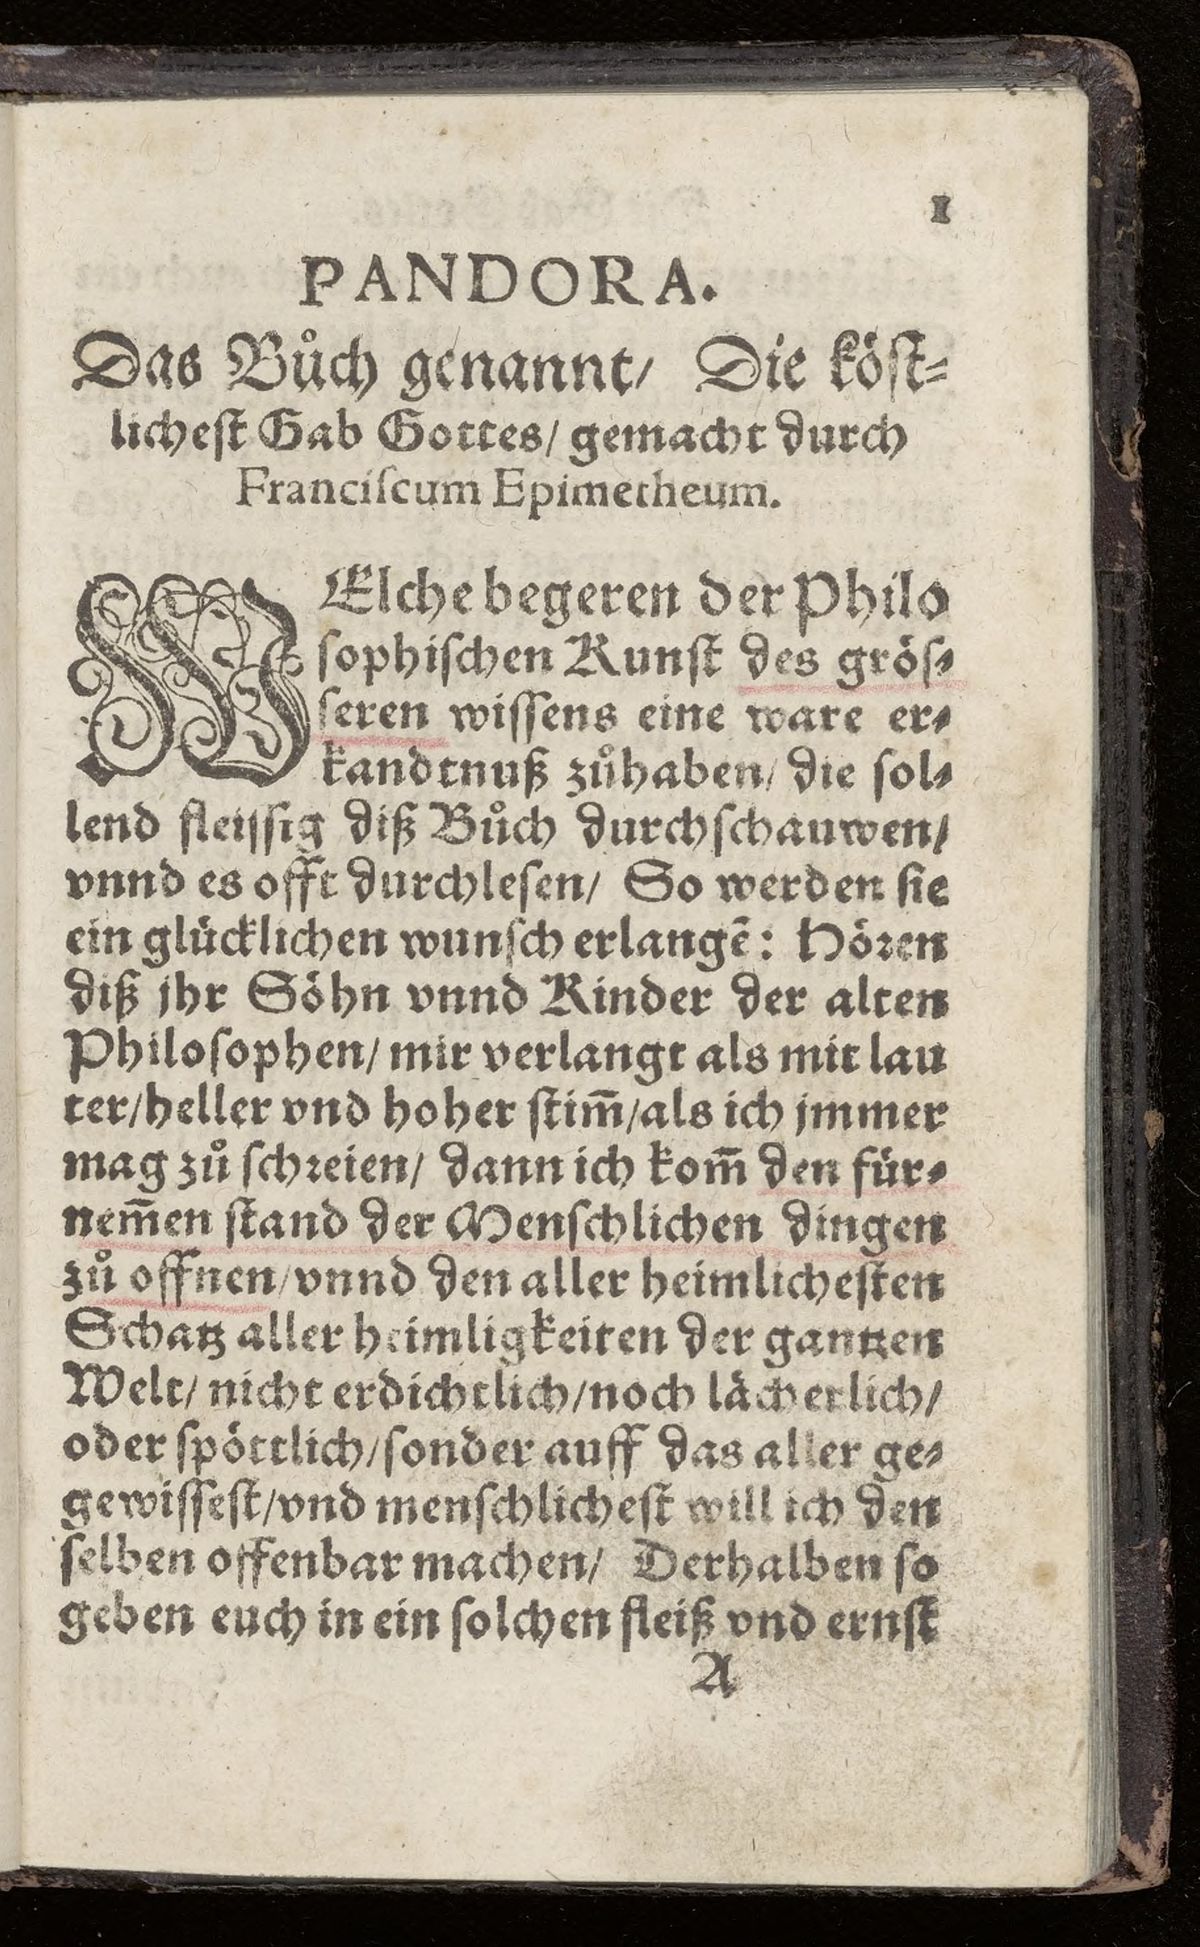 1
PANDORA.
Das Bůch genannt/ Die köst-
lichest Gab Gottes/ gemacht durch
Franciſcum Epimetheum.
WElche begeren der Philo
ſophiſchen Kunſt des gröſ-
ſeren wiſſens eine ware er-
kandtnuß zůhaben/ die ſol-
lend fleiſſig diß Bůch durchſchauwen/
vnnd es offt durchleſen/ So werden ſie
ein glücklichen wunſch erlangẽ: Hören
diß jhr Söhn vnnd Kinder der alten
Philoſophen/ mir verlangt als mit lau
ter/heller vnd hoher ſtim̃/als ich jmmer
mag zů ſchreien/ dann ich kom̃ den für-
nem̃en ſtand der Menſchlichen dingen
zů offnen/vnnd den aller heimlicheſten
Schatz aller heimligkeiten der gantzen
Welt/ nicht erdichtlich/noch lächerlich/
oder ſpöttlich/ſonder auff das aller ge-
gewiſſeſt/vnd menſchlicheſt will ich den
ſelben offenbar machen/ Derhalben ſo
geben euch in ein ſolchen fleiß vnd ernſt
A